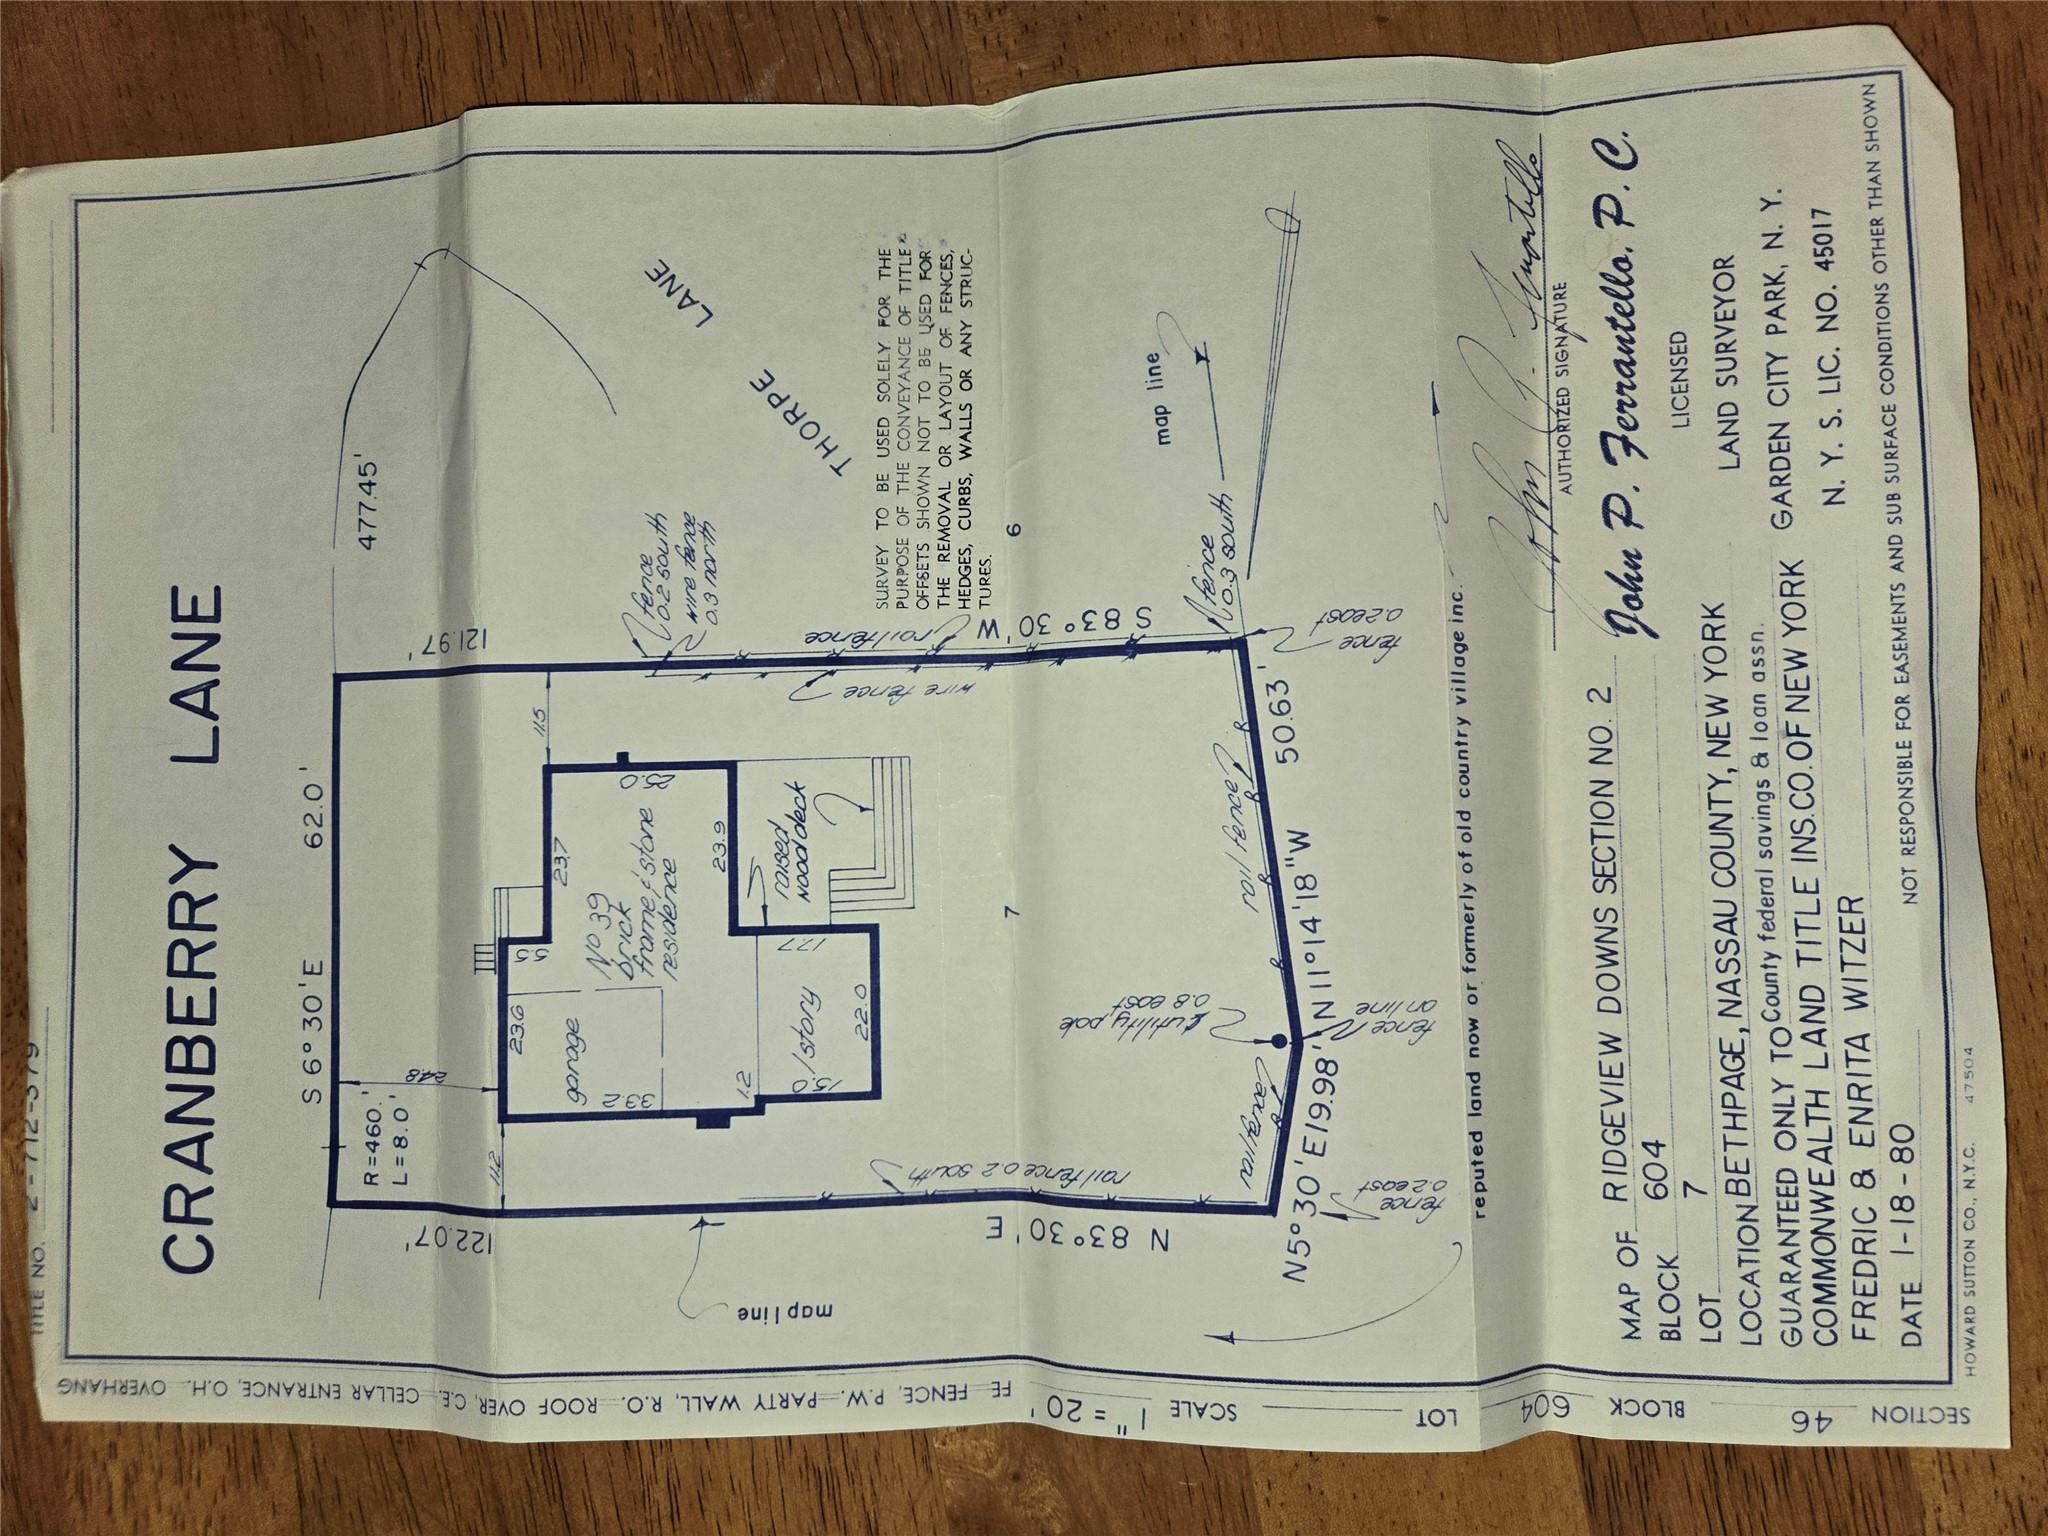 TITLE NO. 2-712-579
CRANBERRY LANE
S 6° 30' E 62.0'
477.45'
R=460.'
L=8.0'
24.8
122.07'
121.97'
11.2
11.5
THORPE LANE
fence
0.2 south
wire fence
0.3 north
SURVEY TO BE USED SOLELY FOR THE
PURPOSE OF THE CONVEYANCE OF TITLE
OFFSETS SHOWN NOT TO BE USED FOR
THE REMOVAL OR LAYOUT OF FENCES,
HEDGES, CURBS, WALLS OR ANY STRUC-
TURES.
23.6
5.5
23.7
25.0
No 39
brick
frame & stone
residence
garage
33.2
1.2
23.9
raised
wood deck
17.7
1 story
15.0
22.0
rail fence
wire fence
S 83° 30' W
N 83° 30' E
rail fence 0.2 south
map line
7
6
map line
fence
0.3 south
fence
0.2 east
rail fence
utility pole
0.8 east
rail fence
fence
on line
fence
0.2 east
N5° 30' E19.98' N11° 14' 18" W 50.63'
reputed land now or formerly of old country village inc.
John P. Ferrantello
AUTHORIZED SIGNATURE
John P. Ferrantello, P.C.
LICENSED
LAND SURVEYOR
GARDEN CITY PARK, N. Y.
N. Y. S. LIC. NO. 45017
MAP OF RIDGEVIEW DOWNS SECTION NO. 2
BLOCK 604
LOT 7
LOCATION BETHPAGE, NASSAU COUNTY, NEW YORK
GUARANTEED ONLY TO County federal savings & loan assn.
COMMONWEALTH LAND TITLE INS.CO. OF NEW YORK
FREDRIC & ENRITA WITZER
DATE 1-18-80
NOT RESPONSIBLE FOR EASEMENTS AND SUB SURFACE CONDITIONS OTHER THAN SHOWN
HOWARD SUTTON CO., N.Y.C. 47504
SECTION 46 BLOCK 604 LOT SCALE 1" = 20'
FE FENCE, P.W. PARTY WALL, R.O. ROOF OVER, C.E. CELLAR ENTRANCE, O.H. OVERHANG